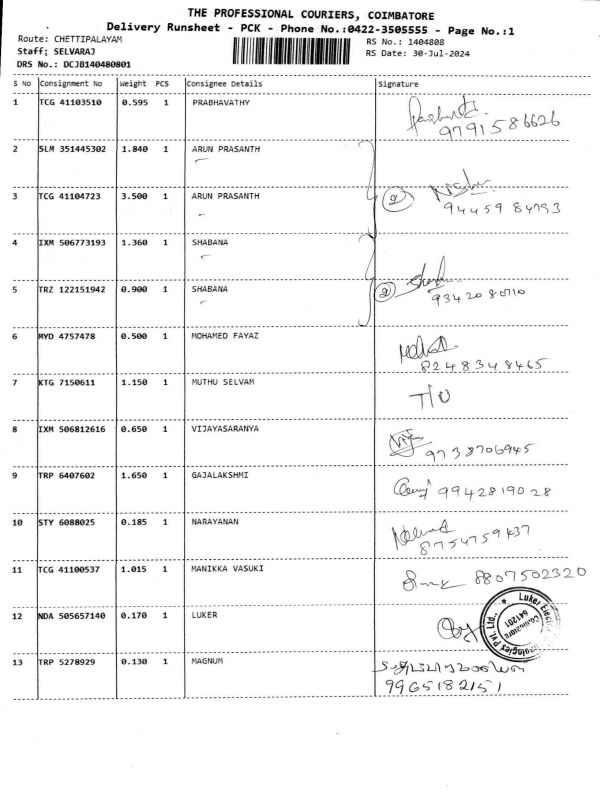 THE PROFESSIONAL COURIERS, COIMBATORE
Delivery Runsheet - PCK - Phone No.:0422-3505555 - Page No.:1
Route: CHETTIPALAYAM RS No.: 1404808
Staff: SELVARAJ RS Date: 30-Jul-2024
DRS No.: DCJB140480801
S No Consignment No Weight PCS Consignee Details Signature
1 TCG 41103510 0.595 1 PRABHAVATHY
9791586626
2 SLM 351445302 1.840 1 ARUN PRASANTH
3 TCG 41104723 3.500 1 ARUN PRASANTH 2
94459 84793
4 IXM 506773193 1.360 1 SHABANA
5 TRZ 122151942 0.900 1 SHABANA 2
9342080710
6 MYD 4757478 0.500 1 MOHAMED FAYAZ
8248348465
7 KTG 7150611 1.150 1 MUTHU SELVAM T/O
8 IXM 506812616 0.650 1 VIJAYASARANYA
9738706945
9 TRP 6407602 1.650 1 GAJALAKSHMI 9942819028
10 STY 6088025 0.185 1 NARAYANAN
8754759437
11 TCG 41100537 1.015 1 MANIKKA VASUKI 8807502320
12 NDA 505657140 0.170 1 LUKER
Luker Electric Technologies Pvt. Ltd.,
Coimbatore
641201
13 TRP 5278929 0.130 1 MAGNUM
9965182151